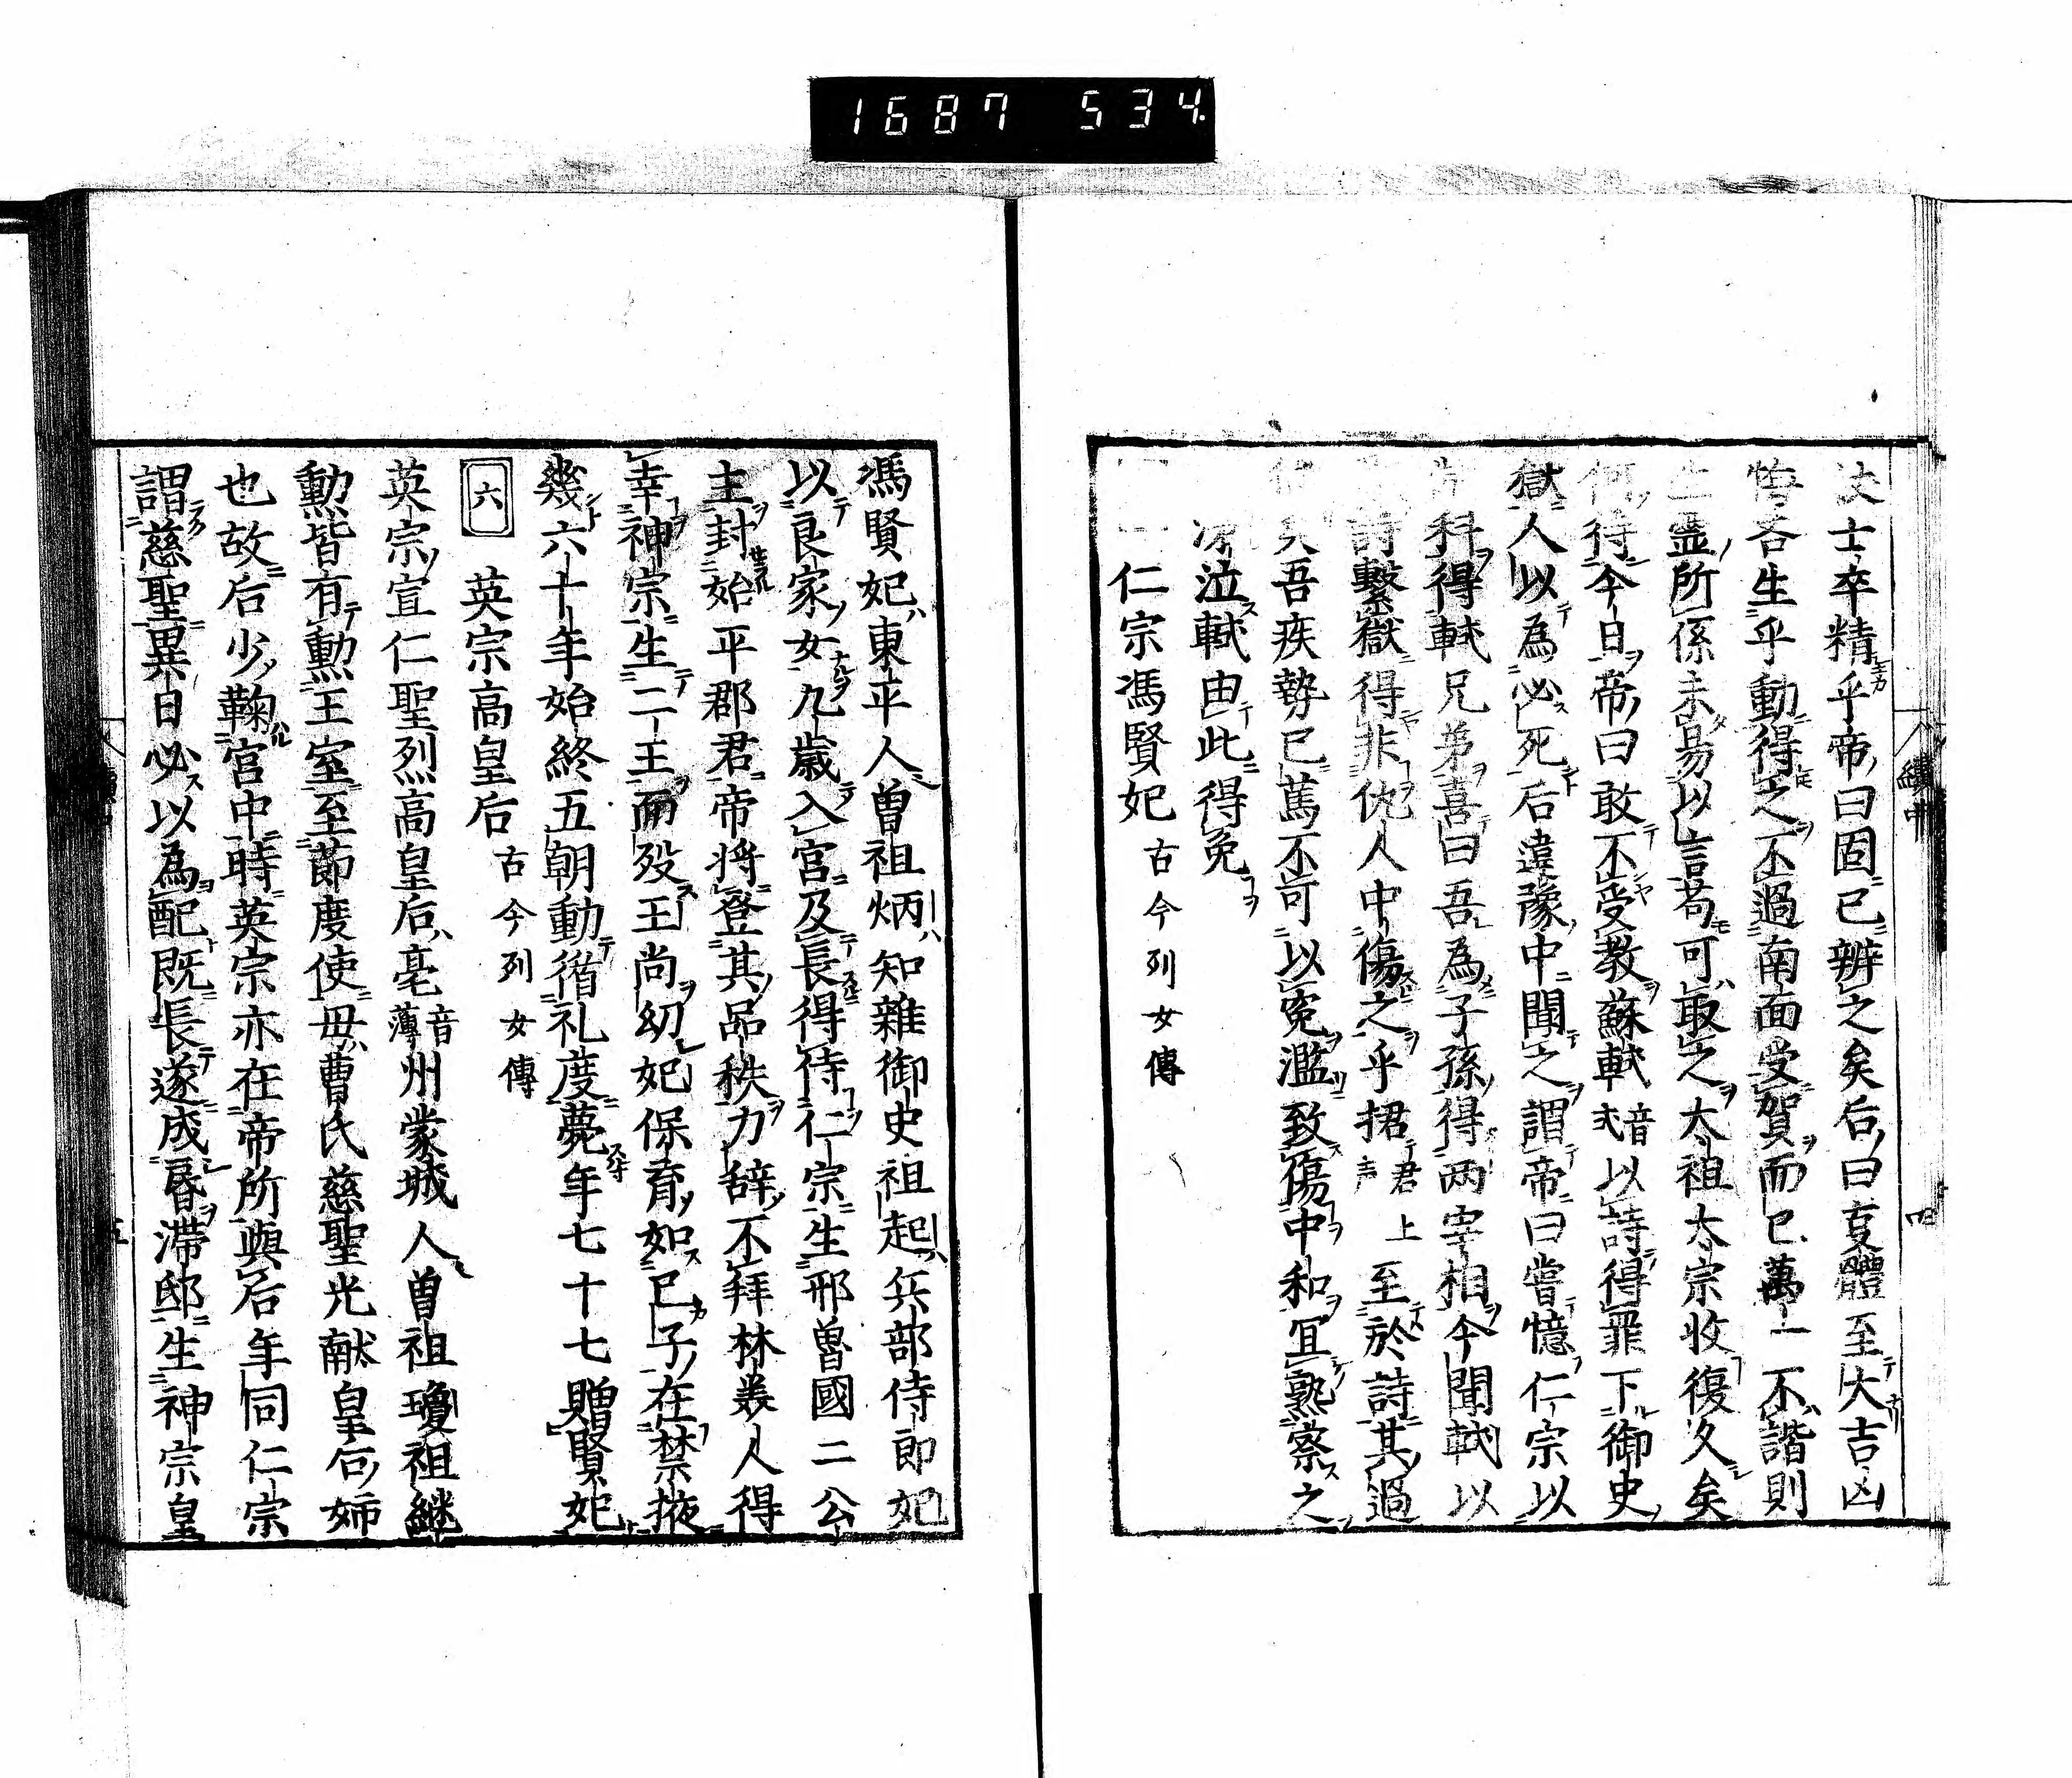 1687 534.
士卒精乎帝曰固已辨之矣后曰夏體至大吉凶
悔吝生乎動得之不過南面受賀而已萬一不諧則
生靈所係未易以言苟可取之太祖太宗收復久矣
何待今日帝曰敢不受教蘇軾音弌以詩得罪下御史
獄人以為必死后違豫中聞之謂帝曰嘗憶仁宗以
制科得軾兄弟喜曰吾為子孫得两宰相今聞軾以
詩繫獄得非仇人中傷之乎捃君上声至於詩其過
矣吾疾勢已篤不可以冤濫致傷中和冝熟察之
泣軾由此得免
仁宗馮賢妃 古今列女傳
馮賢妃東平人曽祖炳知雜御史祖起兵部侍郎妃
以良家女九歳入宮及長得侍仁宗生邢魯國二公
主封始平郡君帝將登其品秩力辞不拜林美人得
幸神宗生二王而殁王尚幼妃保育如已子在禁掖
幾六十年始終五朝動循礼度薨年七十七贈賢妃
六 英宗高皇后 古今列女傳
英宗宣仁聖烈高皇后亳音薄州蒙城人曽祖瓊祖継
勲皆有勲王室至節度使毋曹氏慈聖光献皇后姉
也故后少鞠宮中時英宗亦在帝所與后年同仁宗
謂慈聖異日必以為配既長遂成昏濮邸生神宗皇